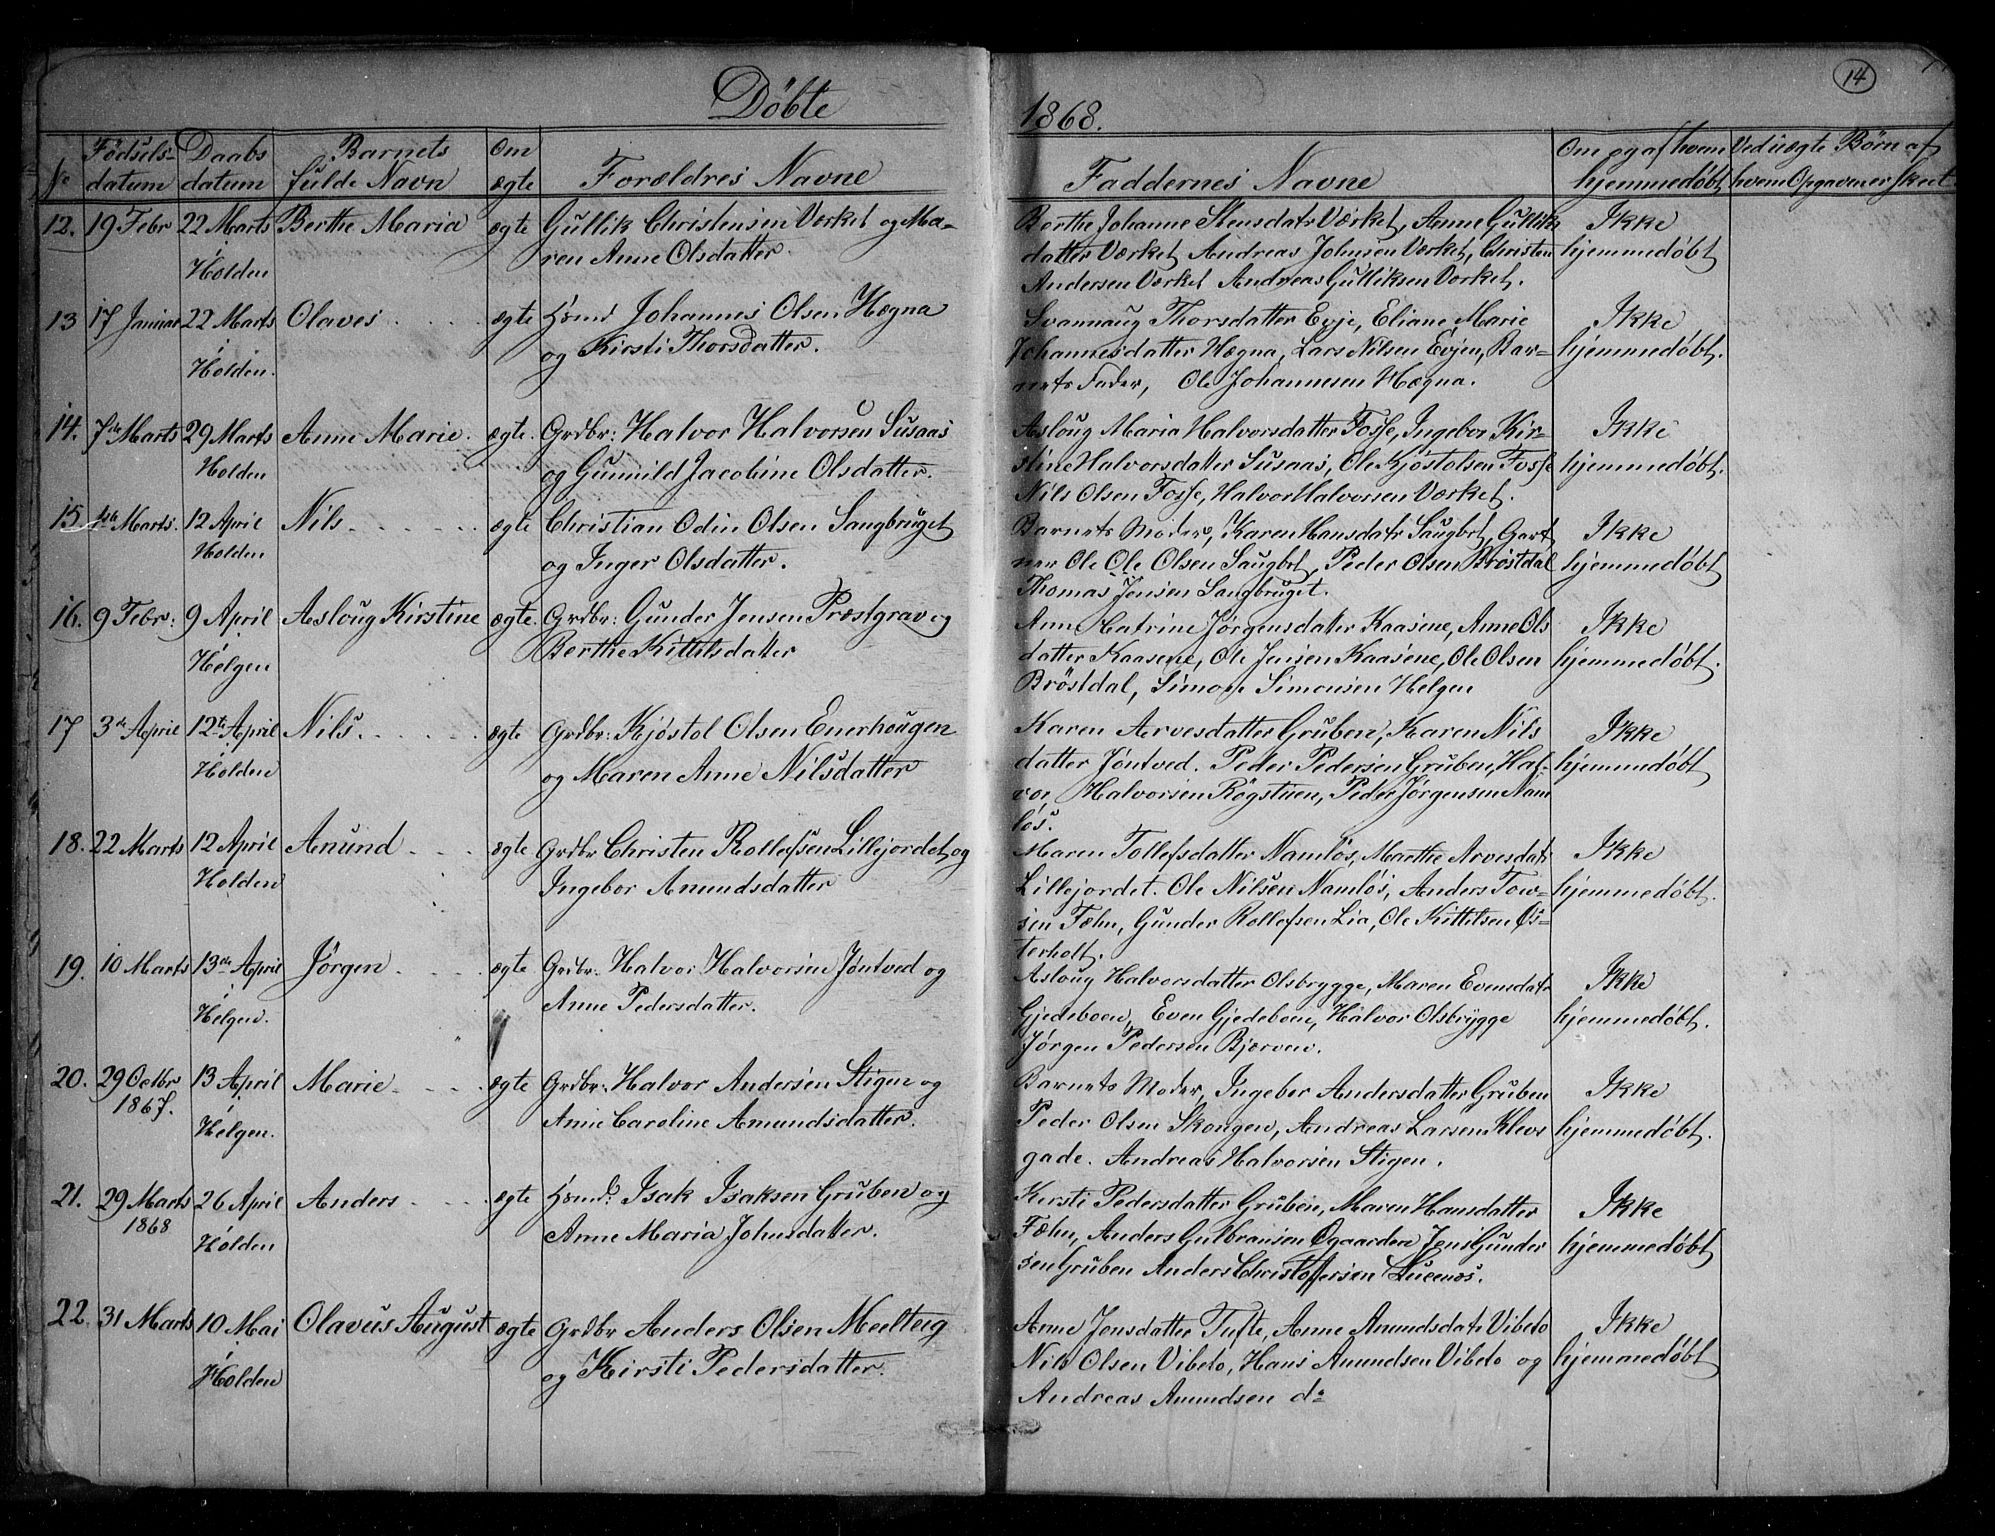 14
Döbte
1868.
No
Fødsels-
datum
Daabs
datum
Barnets
fulde Navn
Om
ægte
Forældres Navne
Faddernes Navne
Om og af hvem
hjemmedøbt
Ved uægte Børn af
hvem Opgaven er skeet
12. 19 Febr 22 Marts Berthe Maria ægte Gullik Christensen Værket og Ma-
Holden ren Anne Olsdatter.
Berthe Johanne Stensdatr Værket, Anne Gulliks
datter Værket Andreas Johnsen Værket, Christen
Andersen Værket Andreas Gulliksen Værket.
Ikke
hjemmedøbt
13 17 Januar 22 Marts Olaves ægte Huusmd Johannes Olsen Hægna
Holden. og Kirsti Thorsdatter.
Svannaug Thorsdatter Evje, Eliane Marie
Johannesdatter Hægna, Lars Nilsen Evjen, Bar-
nets Fader, Ole Johannesen Hægna.
Ikke
hjemmedøbt.
14. 7de Marts 29 Marts Anne Marie. ægte. Grdbr: Halvor Halvorsen Susaas
Holden og Gunnild Jacobine Olsdatter.
Asloug Maria Halvorsdatter Fosse, Ingebor Kir-
stine Halvorsdatter Susaas, Ole Kjøstolsen Fosse
Nils Olsen Fosse, Halvor Halvorsen Værket.
Ikke
hjemmedøbt.
15 1ste Marts. 12 April Nils ægte Christian Odin Olsen Saugbruget
Holden og Inger Olsdatter.
Barnets Moder, Karen Hansdatr Saugbrt, Gart
ner Ole Ole Olsen Saugbrt, Peder Olsen Brøstdal
Thomas Jensen Saugbruget.
Ikke
hjemmedøbt
16. 9 Febr: 9 April Asloug Kirstine ægte. Grdbr: Gunder Jensen Præstgrav og
Helgen Berthe Kittilsdatter
Anne Catrine Jørgensdatter Kaasene, Anne Ols
datter Kaasene, Ole Jensen Kaasene, Ole Olsen
Brøstdal, Simon Simonsen Helgen
Ikke
hjemmedøbt.
17 3de April 12te April Nils ægte Grdbr: Kjøstol Olsen Enerhougen
Holden og Maren Anne Nilsdatter
Karen Arvesdatter Gruben, Karen Nils
datter Jøntved. Peder Pedersen Gruben, Hal-
vor Halvorsen Røgstuen, Peder Jørgensen Nam
løs.
Ikke
hjemmedøbt
18. 22 Marts 12 April Anund ægte Grdbr Christen Rollefsen Lillejordet og
Holden Ingebor Anundsdatter
Maren Tollefsdatter Namløs, Marthe Arvesdatr
Lillejordet. Ole Nilsen Namløs, Anders Tow-
sen Fæhn, Gunder Rollefsen Lia, Ole Kittilsen Øs-
terholt.
Ikke
hjemmedøbt.
19. 10 Marts 13de April Jørgen ægte Grdbr. Halvor Halvorsen Jøntved og
Helgen. Anne Pedersdatter.
Asloug Halvorsdatter Olsbrygge, Maren Evensdatr
Gjedeboen, Even Gjedeboen, Halvor Olsbrygge
Jørgen Pedersen Bjærven.
Ikke
hjemmedøbt.
20. 29 Octbr 13 April Marie ægte Grdbr: Halvor Andersen Stigen og
1867. Helgen. Anne Caroline Amundsdatter.
Barnets Moder, Ingeber Andersdatter Gruben
Peder Olsen Skougen, Andreas Larsen Klevs
gade. Andreas Halvorsen Stigen.
Ikke
hjemmedøbt.
21. 29 Marts 26 April Anders ægte Huusmd: Isak Isaksen Gruben og
1868 Holden Anne Maria Johnsdatter.
Kirsti Pedersdatter Gruben, Maren Hansdatter
Fæhn, Anders Gulbransen Øgaarden Jens Gunder
sen Gruben Anders Christoffersen
Ikke
hjemmedøbt
22. 31 Marts 10 Mai Olavus August ægte Grdbr Anders Olsen Meelteig
Holden og Kirsti Pedersdatter.
Anne Jensdatter Tufte, Anne Amundsdatr Vibeto
Nils Olsen Vibeto, Hans Amundsen Vibeto og
Andreas Amundsen do
Ikke
hjemmedøbt